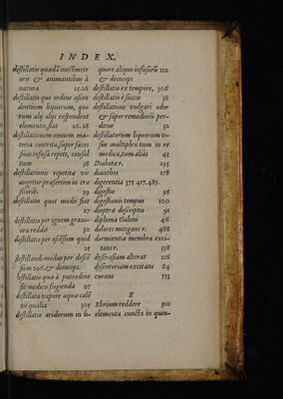 INDEX.
destillatio quædā inest mete
oris & animantibus à
natura 25.26
destillatio quo ordine ascen
dentium liquorum, quo
rum aliȷ alijs respondent
elementis, fiat 26.28
destillationem omnem ma-
teria contrita, super fæces
suas refusa repeti, consul
tum 38
destillationis repetitæ vis
augetur præsertim in
destillatio quot modis fiat
27
destillatio per ignem grauio
ra reddit 30
destillatio per ascēsum quid
25
destillandi modus per descē
sum 296. & deinceps.
destillatio quæ à putredine
sit medicis fugienda 97
destillatio vapore aquæ calē
tis qualis 305
destillatio aridorum in li-
quore aliquo infusorū 122
& deinceps
destillatio ex tempore, 306
destillatio è succis 38
destillatione vulgari ider
& sæpe remedium per-
ditur 32
destillatorum liquorum v-
sus multiplex tum in re
medica, tum alias 45
Diabetæ. 293
dianthos 178
diaperentia 375 427.485.
digestio 95
digestionis tempus 100
dioptræ descriptio 98
diploma Galeni 46
dolores mitigans r. 488
dormientia membra exci-
tans r. 538
dyscrasiam alterat 216
dysenteriam excitans 84
curans 553
E
Ebrium reddere 510
elementa cuncta in quin-